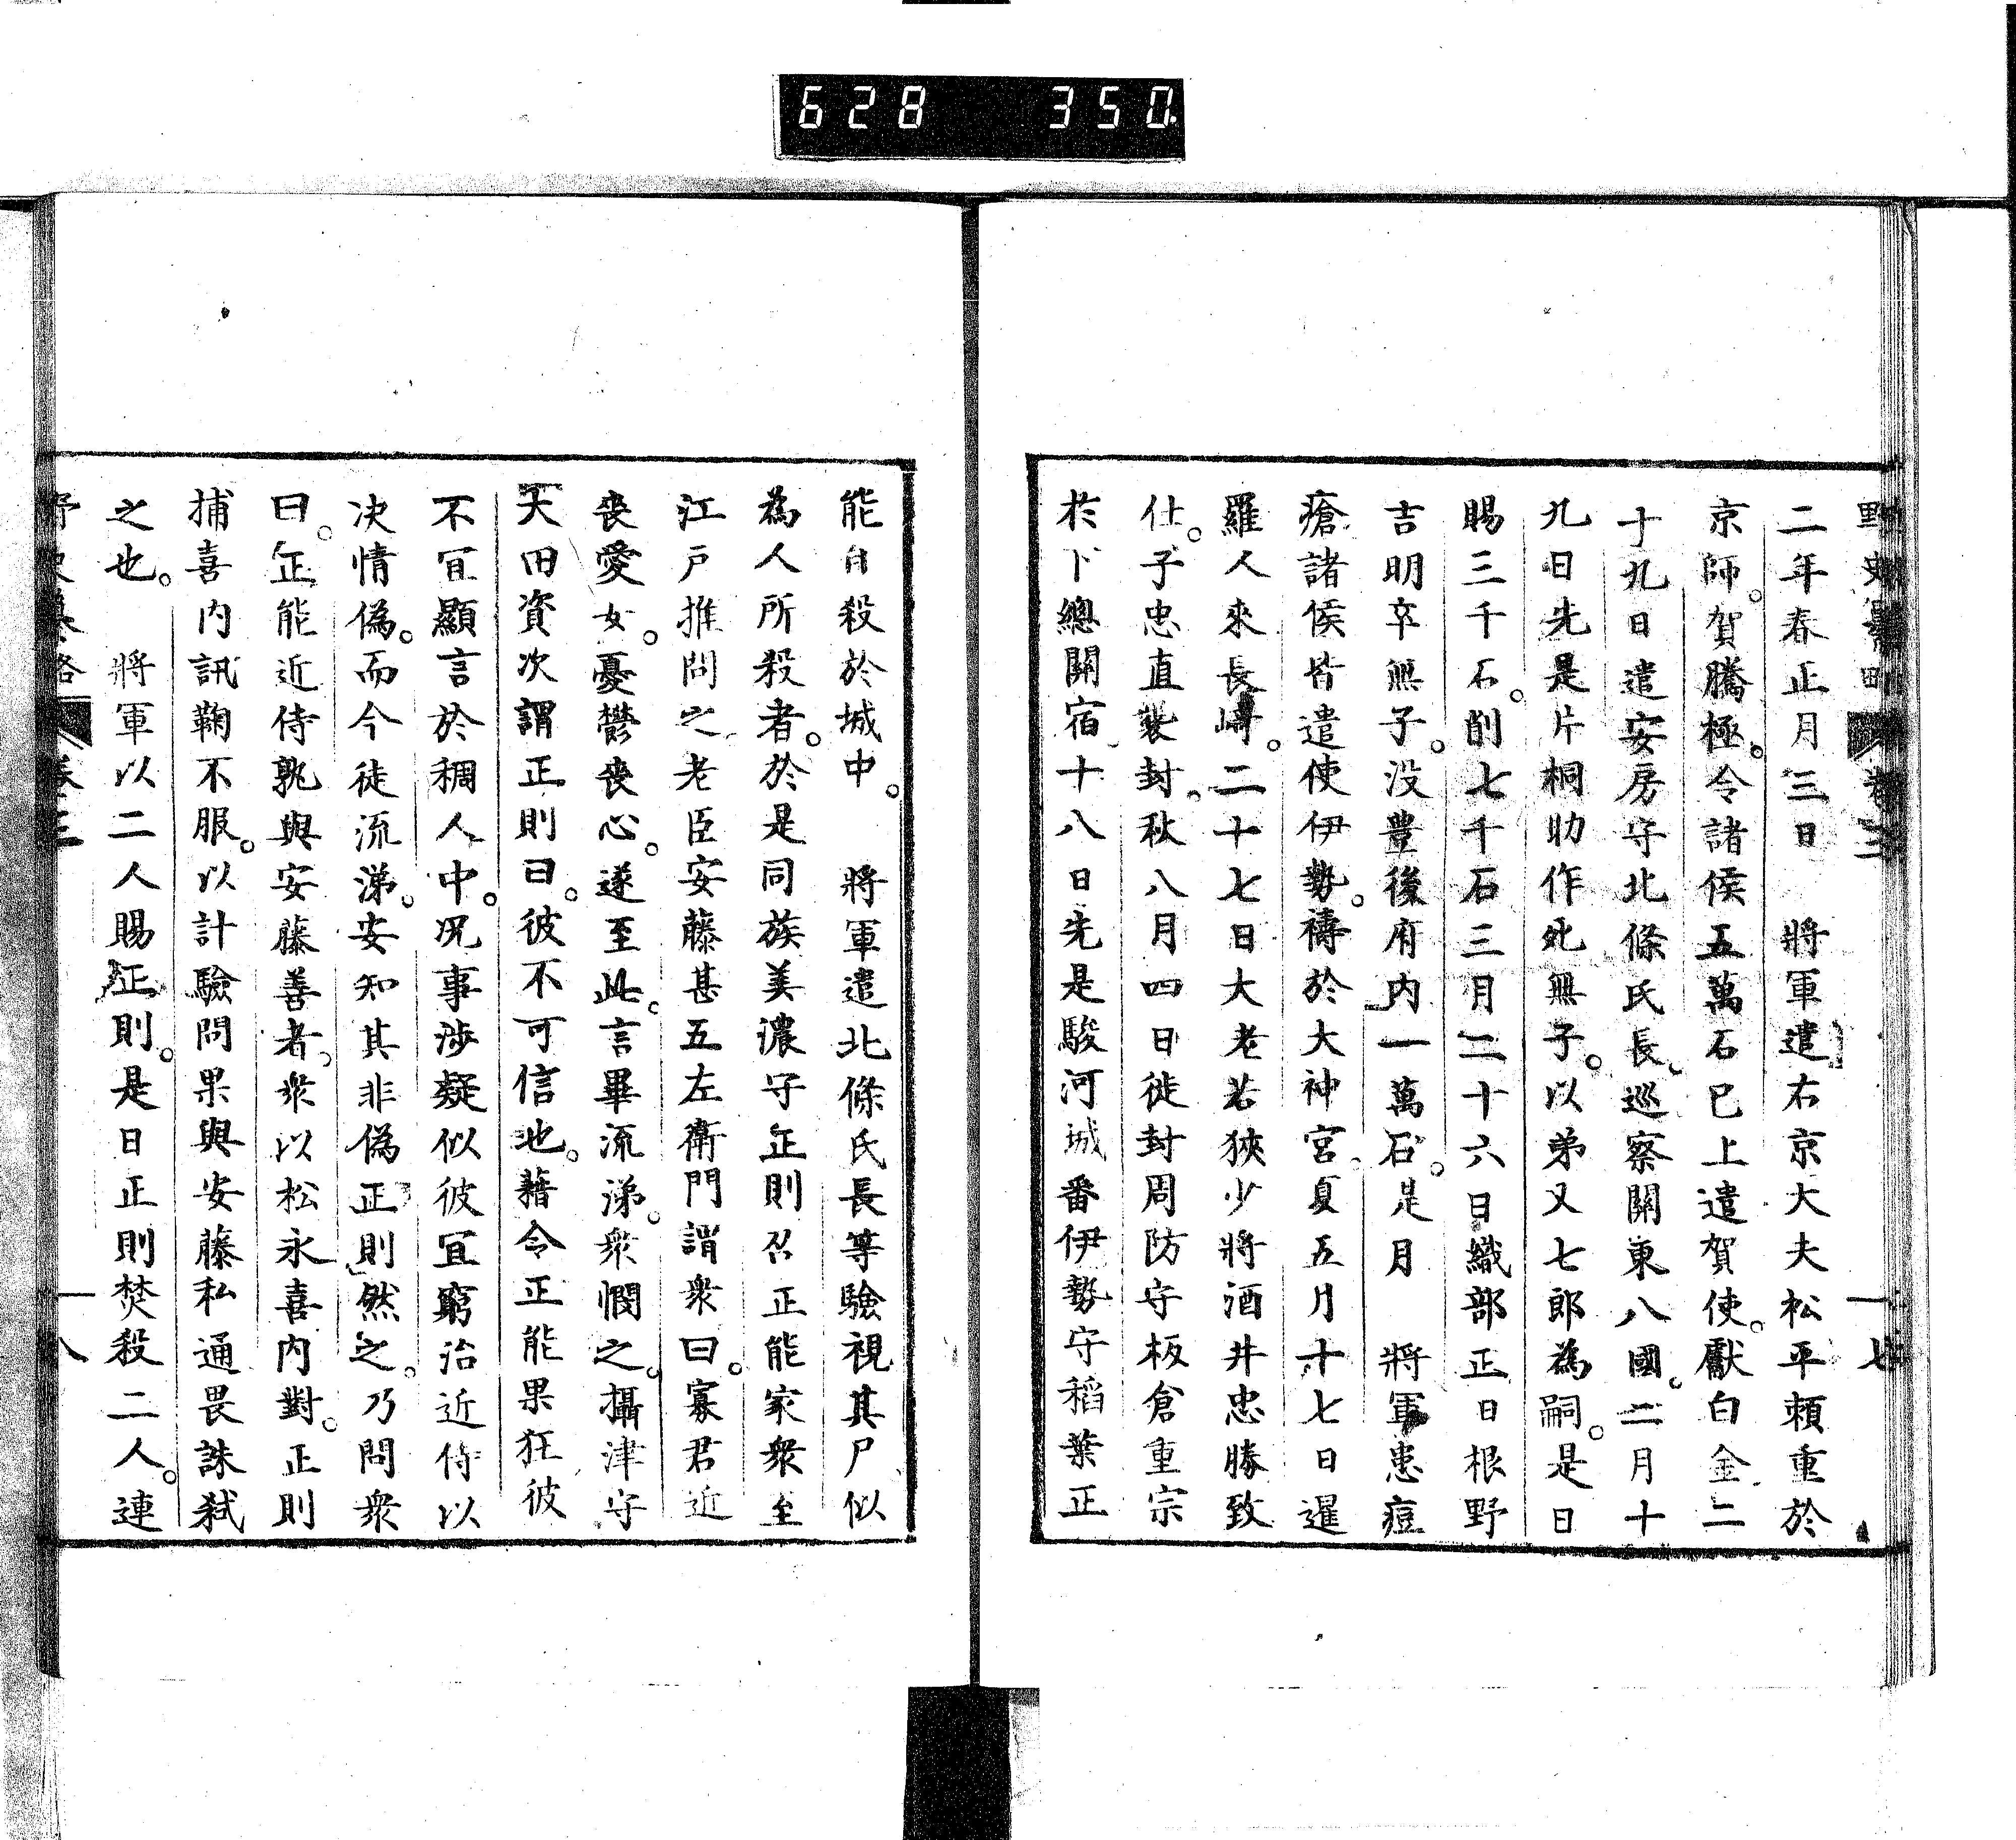 628 350
野史纂略 卷三 一七
二年春正月三日 將軍遣右京大夫松平頼重於
京師。賀騰極。令諸侯五萬石已上遣賀使。獻白金二
十九日遣安房守北條氏長。巡察關東八國。二月十
九日先是片桐助作死無子。以弟又七郎為嗣。是日
賜三千石。削七千石三月二十六日織部正日根野
吉明卒無子。没豊後府内一萬石。是月 將軍患痘
瘡諸侯皆遣使伊勢。禱於大神宮。夏五月十七日暹
羅人來長崎。二十七日大老若狹少將酒井忠勝致
仕。子忠直襲封。秋八月四日徙封周防守板倉重宗
於下總關宿、十八日先是駿河城番伊勢守稻葉正
能自殺於城中。 將軍遣北條氏長等驗視其尸似
為人所殺者。於是同族美濃守正則召正能家衆至
江戸推問之老臣安藤甚五左衛門謂衆曰。寡君近
喪愛女。憂鬱喪心。遂至此。言畢流涕。衆憫之。攝津守
天田資次謂正則曰。彼不可信也。藉令正能果狂彼
不宜顯言於稠人中。况事渉疑似彼宜窮治近侍以
决情偽。而今徒流涕。安知其非偽正則然之。乃問衆
曰。正能近侍孰與安藤善者。衆以松永喜内對。正則
捕喜内訊鞠不服。以計驗問果與安藤私通畏誅弑
之也。 將軍以二人賜正則。是日正則焚殺二人。連
野史纂略 卷三 一八